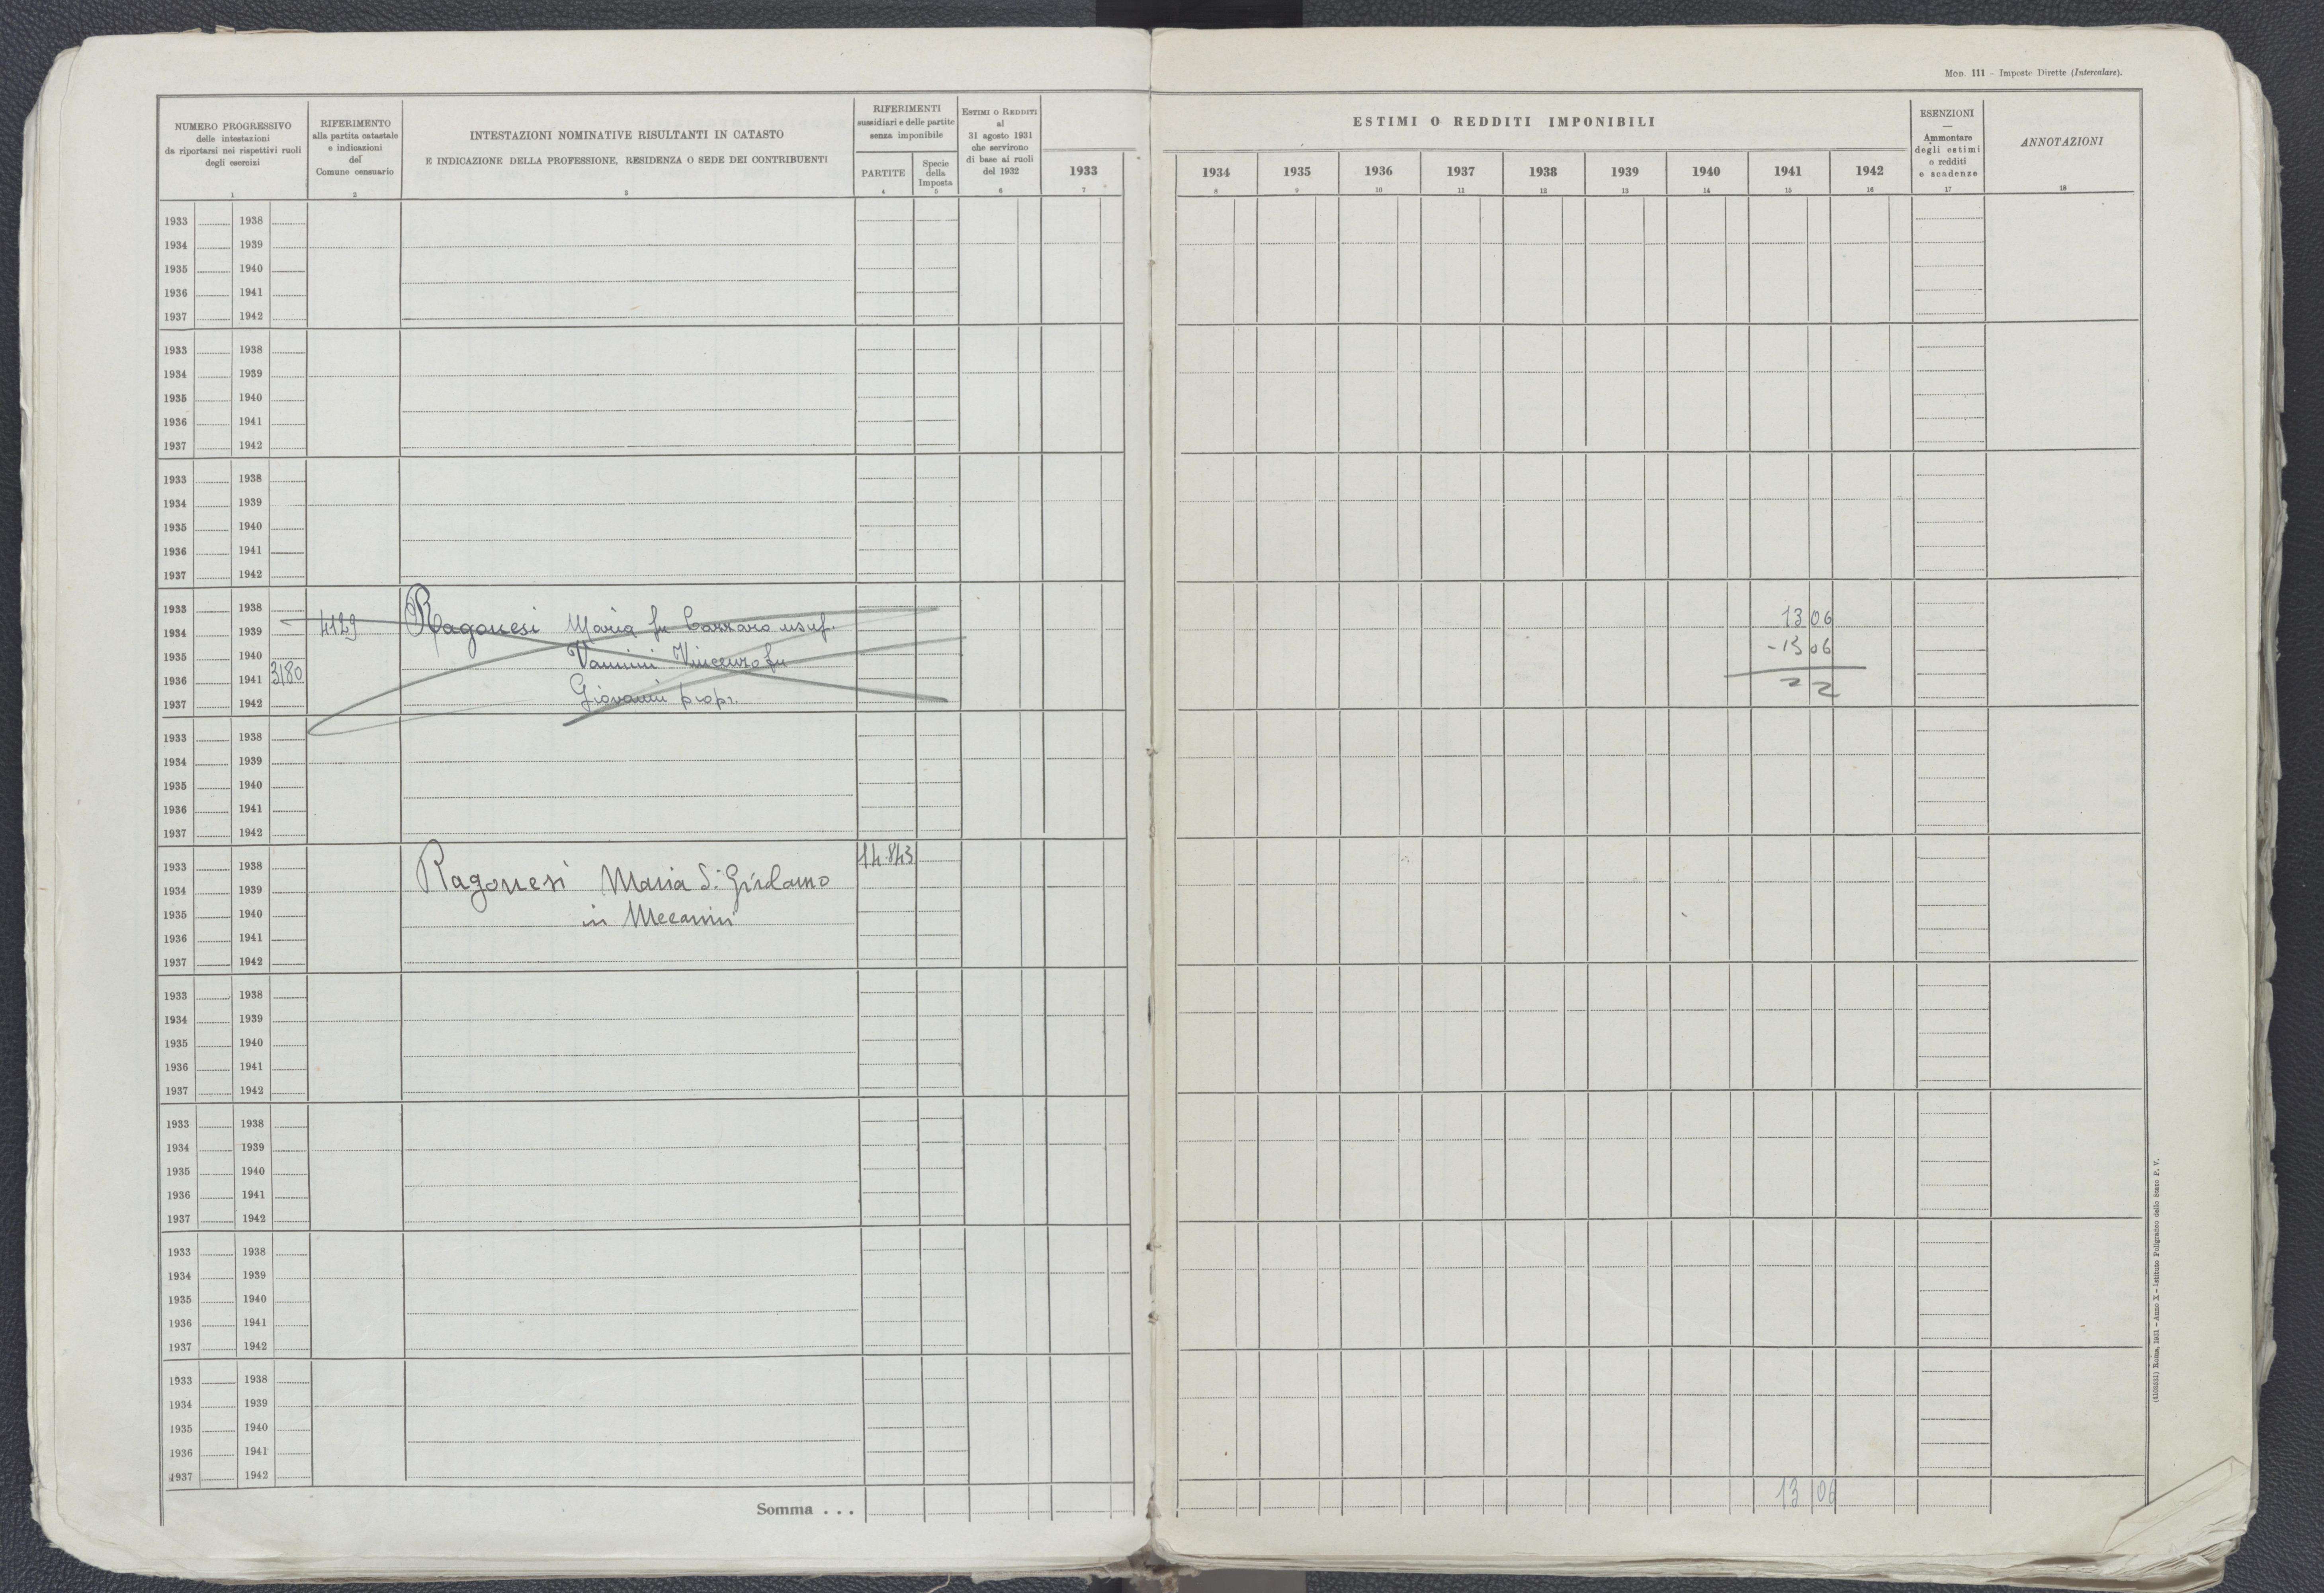 MOD. 111 - Imposte Dirette (Intercalare).
NUMERO PROGRESSIVO
delle intestazioni
da riportarsi nei rispettivi ruoli
degli esercizi
1
RIFERIMENTO
alla partita catastale
e indicazioni
del
Comune censuario
2
INTESTAZIONI NOMINATIVE RISULTANTI IN CATASTO
E INDICAZIONE DELLA PROFESSIONE, RESIDENZA O SEDE DEI CONTRIBUENTI
3
RIFERIMENTI
sussidiari e delle partite
senza imponibile
PARTITE
4
Specie
della
Imposta
5
ESTIMI O REDDITI
al
31 agosto 1931
che servirono
di base ai ruoli
del 1932
6
1933
7
ESTIMI O REDDITI IMPONIBILI
1934 1935 1936 1937 1938 1939 1940 1941 1942
8 9 10 11 12 13 14 15 16
ESENZIONI
—
Ammontare
degli estimi
o redditi
e scadenze
17
ANNOTAZIONI
18
1933 1938
1934 1939
1935 1940
1936 1941
1937 1942
1933 1938
1934 1939
1935 1940
1936 1941
1937 1942
1933 1938
1934 1939
1935 1940
1936 1941
1937 1942
1933 1938 13 06
1934 1939 4129 Ragonesi Maria fu usuf.
1935 1940 Vannini Vincenzo fu - 13 06
1936 1941 3180
1937 1942 Giovanni propr.
1933 1938
1934 1939
1935 1940
1936 1941
1937 1942
1933 1938 14.843
1934 1939 Ragonesi Maria di Girolamo
1935 1940 in Mecarini
1936 1941
1937 1942
1933 1938
1934 1939
1935 1940
1936 1941
1937 1942
1933 1938
1934 1939
1935 1940
1936 1941
1937 1942
1933 1938
1934 1939
1935 1940
1936 1941
1937 1942
1933 1938
1934 1939
1935 1940
1936 1941
1937 1942
Somma . . . 13 06
Roma, 1931 - Anno X - Istituto Poligrafico dello Stato P. V.